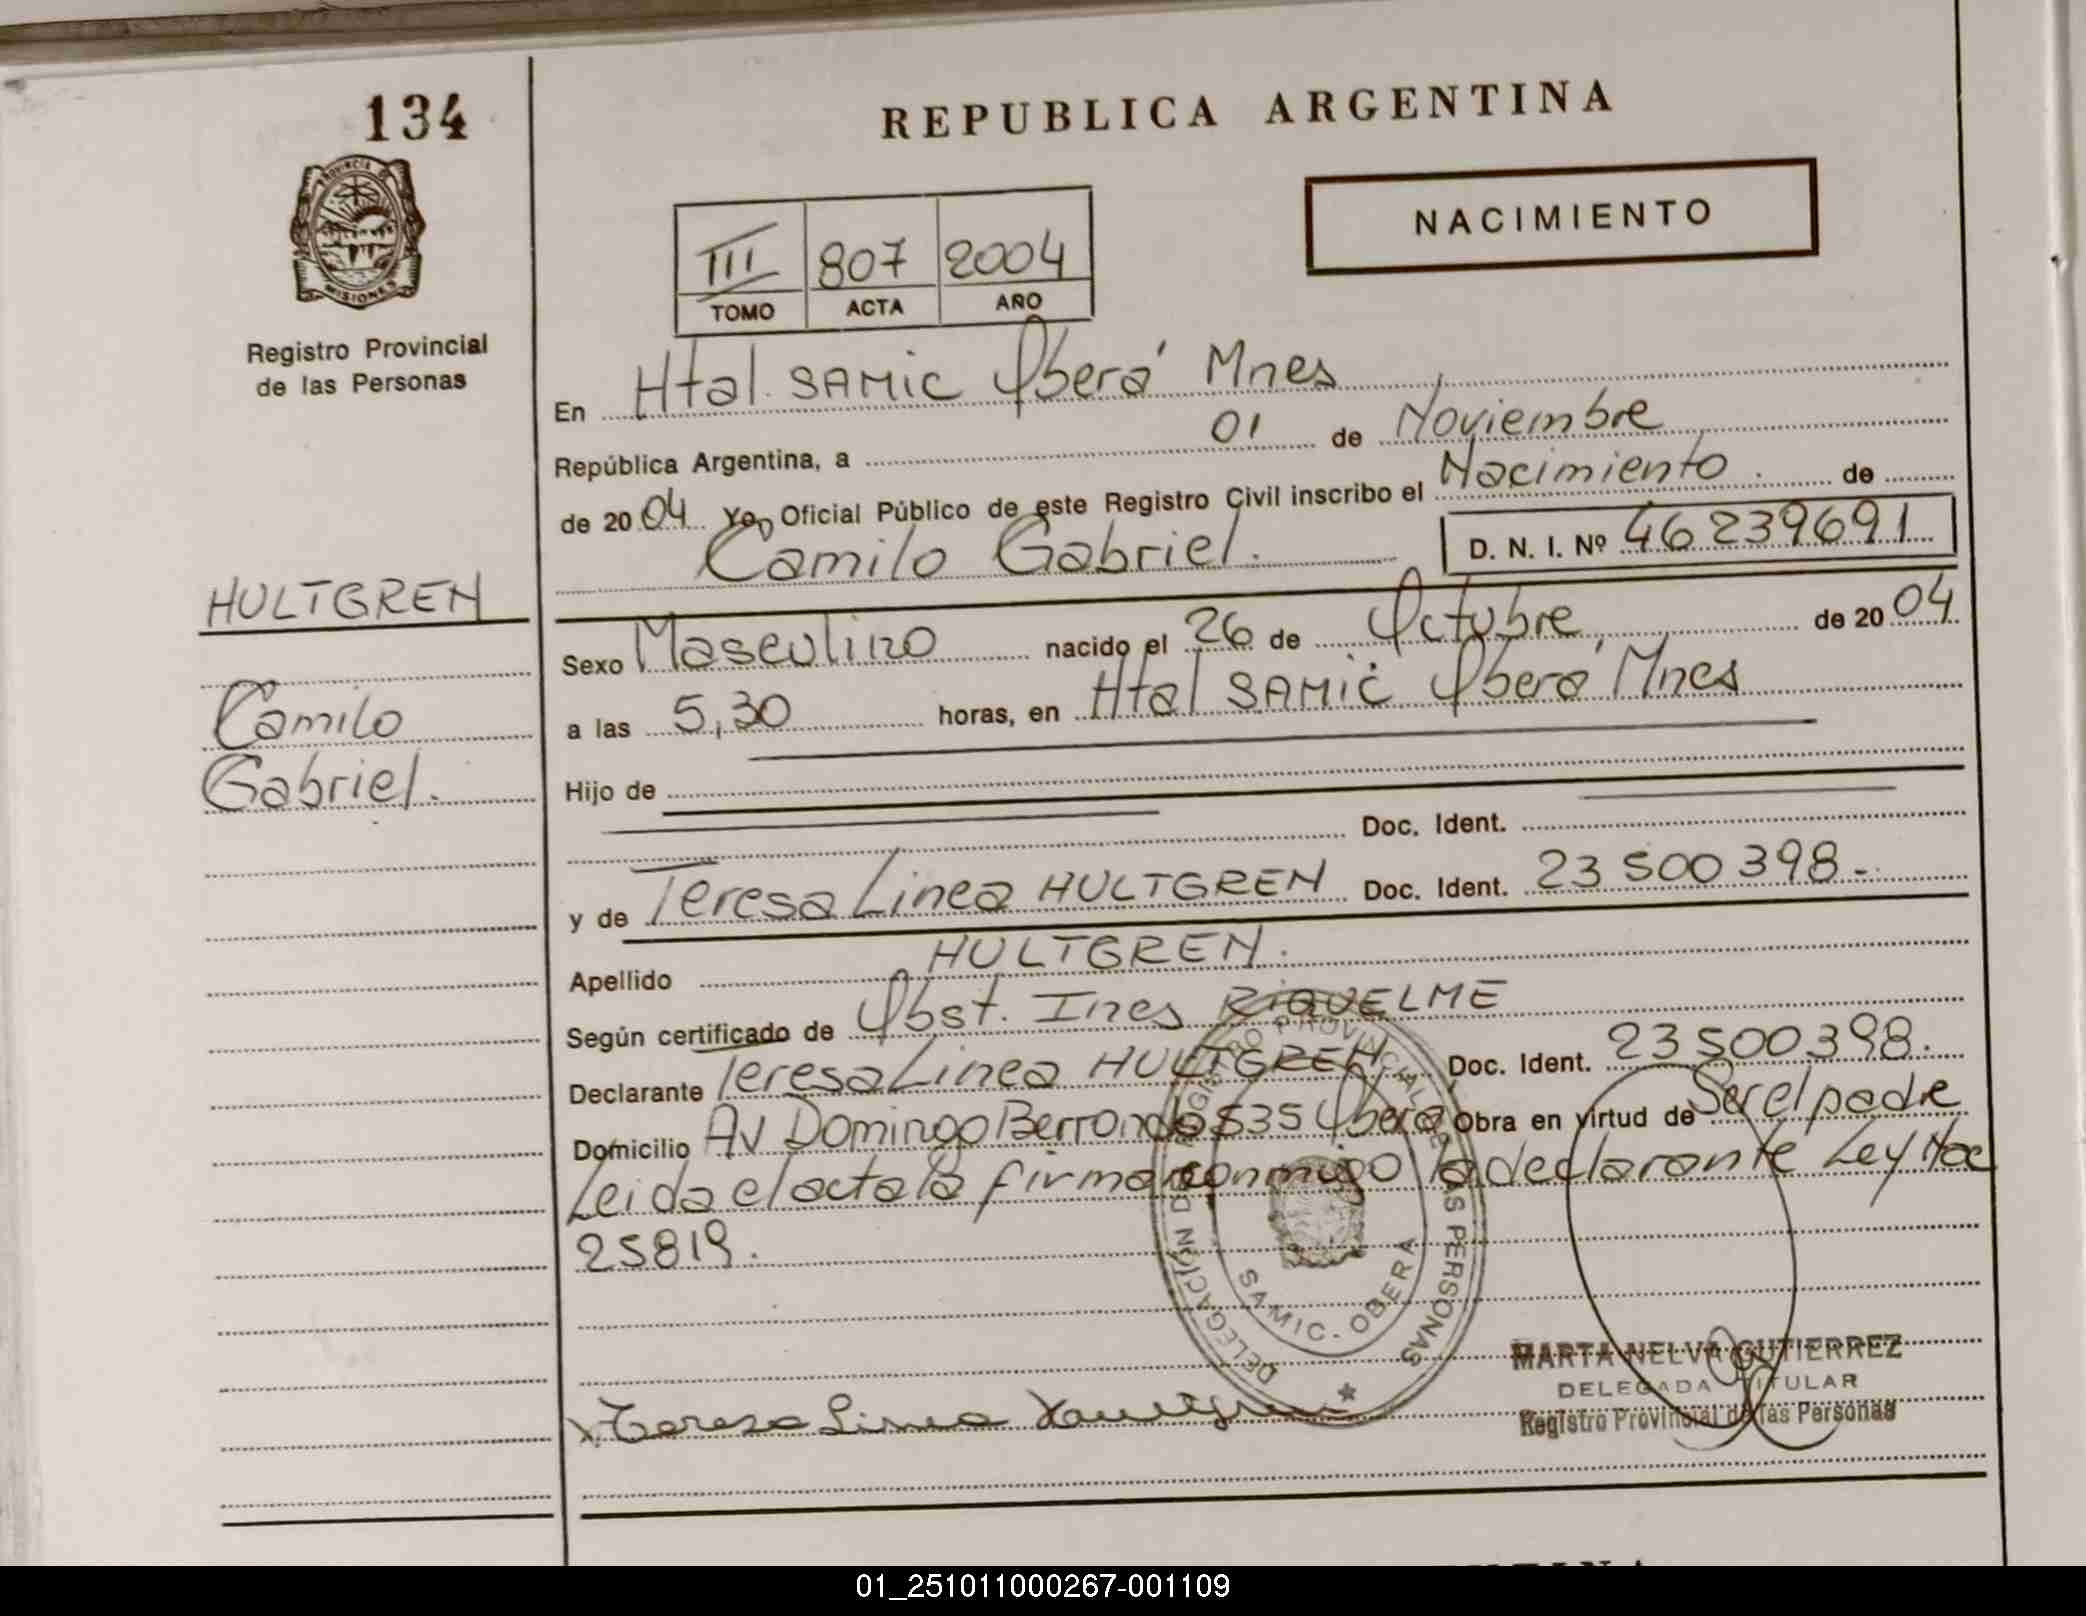 134
REPUBLICA ARGENTINA
PROVINCIA DE
MISIONES
Registro Provincial
de las Personas
NACIMIENTO
III 807 2004
TOMO ACTA AÑO
En Htal. SAMIC Oberá Mnes
República Argentina, a 01 de Noviembre
de 2004 Yo, Oficial Público de este Registro Civil inscribo el Nacimiento de
Camilo Gabriel. D. N. I. Nº 46239691
HULTGREN
Camilo
Gabriel.
Sexo Masculino nacido el 26 de Octubre de 2004
a las 5,30 horas, en Htal SAMIC Oberá Mnes
Hijo de
Doc. Ident.
y de Teresa Linea HULTGREN Doc. Ident. 23500398.-
Apellido HULTGREN.
Según certificado de Obst. Ines RIQUELME
Declarante Teresa Linea HULTGREN Doc. Ident. 23500398.
Domicilio Av Domingo Berrondo 535 Oberá Obra en virtud de Ser el padre
Leida el acta la firma conmigo la declarante Ley Nac
25819.
DELEGACIÓN DEL REGISTRO PROVINCIAL DE LAS PERSONAS
SAMIC. OBERA
Teresa Linea Hultgren
MARTA NELVA GUTIERREZ
DELEGADA TITULAR
Registro Provincial de las Personas
01_251011000267-001109